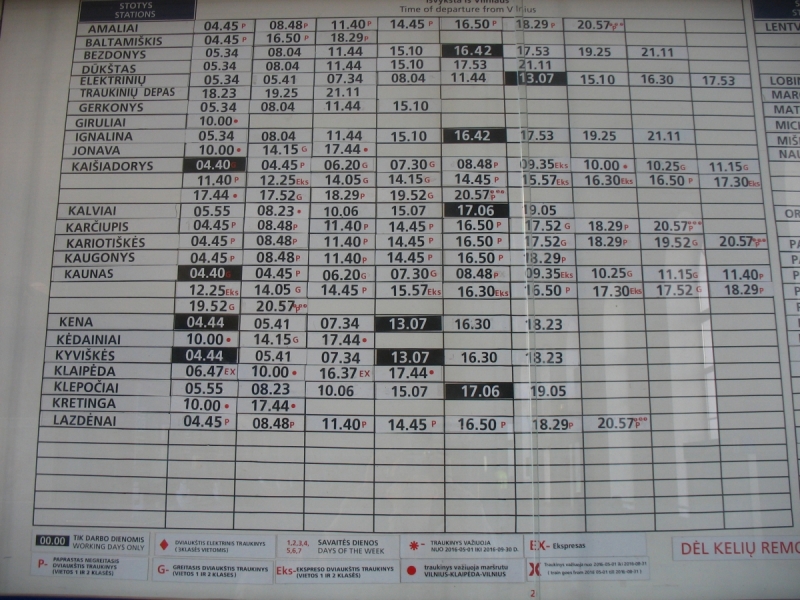 STOTYS
STATIONS
Išvyksta iš Vilniaus
Time of departure from Vilnius
AMALIAI 04.45 P 08.48 P 11.40 P 14.45 P 16.50 P 18.29 P 20.57
BALTAMIŠKIS 04.45 P 16.50 P 18.29 P
BEZDONYS 05.34 08.04 11.44 15.10 16.42 17.53 19.25 21.11
DŪKŠTAS 05.34 08.04 15.10 17.53 21.11
ELEKTRINIŲ 05.34 05.41 07.34 08.04 11.44 13.07 15.10 16.30 17.53
TRAUKINIŲ DEPAS 18.23 19.25 21.11
GERKONYS 05.34 08.04 11.44 15.10
GIRULIAI 10.00 •
IGNALINA 05.34 08.04 11.44 15.10 16.42 17.53 19.25 21.11
JONAVA 10.00 • 14.15 G 17.44 •
KAIŠIADORYS 04.40 G 04.45 P 06.20 G 07.30 G 08.48 P 09.35 Eks 10.00 • 10.25 G 11.15 G
11.40 P 12.25 Eks 14.05 G 14.15 G 14.45 P 15.57 Eks 16.30 Eks 16.50 P 17.30 Eks
17.44 • 17.52 G 18.29 P 19.52 G 20.57 P***
KALVIAI 05.55 08.23 • 10.06 15.07 17.06 19.05
KARČIUPIS 04.45 P 08.48 P 11.40 P 14.45 P 16.50 P 17.52 G 18.29 P 20.57 P***
KARIOTIŠKĖS 04.45 P 08.48 P 11.40 P 14.45 P 16.50 P 17.52 G 18.29 P 19.52 G 20.57 P***
KAUGONYS 04.45 P 08.48 P 11.40 P 14.45 P 16.50 P 18.29 P
KAUNAS 04.40 G 04.45 P 06.20 G 07.30 G 08.48 P 09.35 Eks 10.25 G 11.15 G 11.40 P
12.25 Eks 14.05 G 14.45 P 15.57 Eks 16.30 Eks 16.50 P 17.30 Eks 17.52 G 18.29 P
19.52 G 20.57 P***
KENA 04.44 05.41 07.34 13.07 16.30 18.23
KĖDAINIAI 10.00 • 14.15 G 17.44 •
KYVIŠKĖS 04.44 05.41 07.34 13.07 16.30 18.23
KLAIPĖDA 06.47 EX 10.00 • 16.37 EX 17.44 •
KLEPOČIAI 05.55 08.23 10.06 15.07 17.06 19.05
KRETINGA 10.00 • 17.44 •
LAZDĖNAI 04.45 P 08.48 P 11.40 P 14.45 P 16.50 P 18.29 P 20.57 P***
LENTV
LOBI
MAR
MAT
MIC
MIŠ
NAU
00.00 TIK DARBO DIENOMIS
WORKING DAYS ONLY
♦ DVIAUKŠTIS ELEKTRINIS TRAUKINYS
( 3KLASĖS VIETOMIS)
1,2,3,4,
5,6,7
SAVAITĖS DIENOS
DAYS OF THE WEEK
* - TRAUKINYS VAŽIUOJA
NUO 2016-05-01 IKI 2016-09-30 D.
EX - Ekspresas
P- PAPRASTAS NEGREITASIS
DVIAUKŠTIS TRAUKINYS
(VIETOS 1 IR 2 KLASĖS)
G- GREITASIS DVIAUKŠTIS TRAUKINYS
(VIETOS 1 IR 2 KLASĖS)
Eks- EKSPRESO DVIAUKŠTIS TRAUKINYS
(VIETOS 1 IR 2 KLASĖS)
• traukinys važiuoja maršrutu
VILNIUS-KLAIPĖDA-VILNIUS
DĖL KELIŲ REMO
2